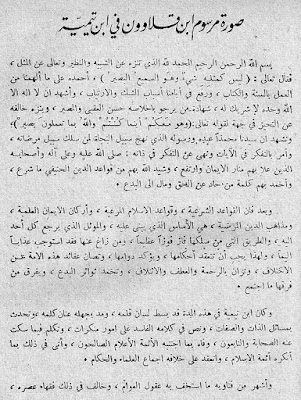 صورة مرسوم ابن قلاوون في ابن تيمية
بسم الله الرحمن الرحيم الحمد لله الذي تنزه عن الشبيه والنظير وتعالى عن المثل ،
فقال تعالى : ( ليس كمثله شيء وهو السميع البصير ) ، أحمده على ما ألهمنا من
العمل بالسنة والكتاب ، ورفع في أيامنا أسباب الشك والارتياب ، وأشهد أن لا إله إلا
الله وحده لا شريك له ، شهادة من يرجو بإخلاصه حسن العقبى والمصير ، وينزه خالقه
عن التحيز في جهة لقوله تعالى (وهو معكم أينما كنتم والله بما تعملون بصير) ،
وأشهد أن سيدنا محمداً عبده ورسوله الذي نهج سبيل النجاة لمن سلك سبيل مرضاته ،
وأمر بالتفكر في الآيات ونهى عن التفكر في ذاته ، صلى الله عليه وعلى آله وأصحابه
الذين علا بهم منار الإيمان وارتفع ، وشيد الله بهم من قواعد الدين الحنيفي ما شرع ،
وأخمد بهم كلمة من حاد عن الحق ومال إلى البدع .
وبعد فإن القواعد الشرعية ، وقواعد الاسلام المرعية ، وأركان الايمان العلمية ،
ومذاهب الدين المرضية ، هي الأساس الذي يبنى عليه ، والموئل الذي يرجع كل أحد
إليه ، والطريق التي من سلكها فاز فوزاً عظيماً ، ومن زاغ عنها فقد استوجب عذاباً
أليماً ، ولهذا يجب أن تنفذ أحكامها ، ويؤكد دوامها ، وتصان عقائد هذه الامة عن
الاختلاف ، وتزان بالرحمة والعطف والائتلاف ، وتخمد ثوائر البدع ، ويفرق من
فرقها ما اجتمع .
وكان ابن تيمية في هذه المدة قد بسط لسان قلمه ، ومد بجهله عنان كلمه ، وتحدث
بمسائل الذات والصفات ، ونص في كلامه الفاسد على أمور منكرات ، وتكلم فيما سكت
عنه الصحابة والتابعون ، وفاه بما اجتنبه الأئمة الأعلام الصالحون ، وأتى في ذلك بما
أنكره أئمة الإسلام ، وانعقد على خلافه اجماع العلماء والحكام .
وأشهر من فتاويه ما استخف به عقول العوام ، وخالف في ذلك فقهاء عصره ،